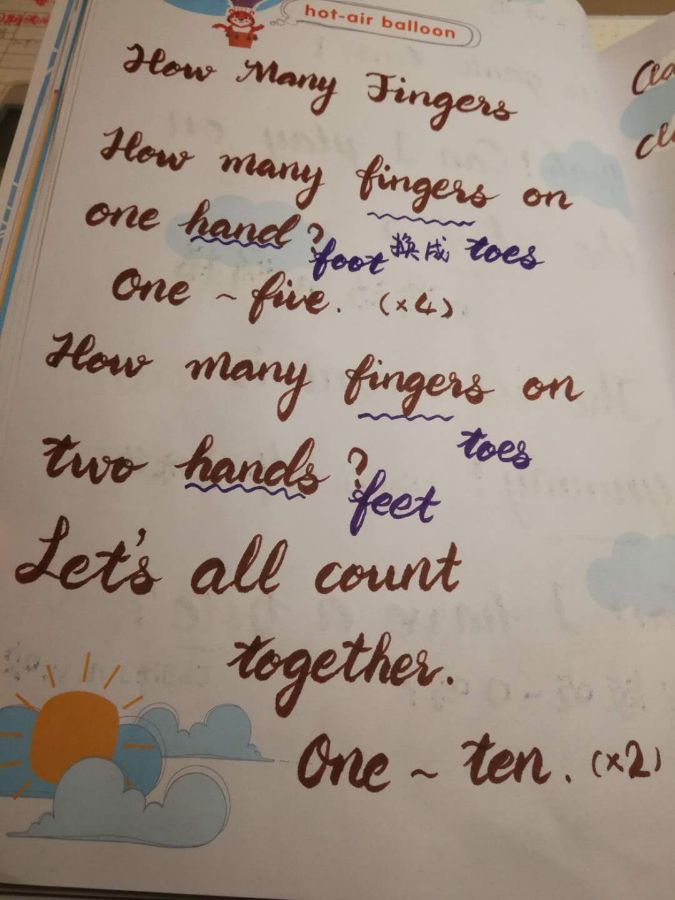 hot-air balloon
How Many Fingers
How many fingers on
one hand?
foot 换成 toes
One ~ five. (×4)
How many fingers on
toes
two hands?
feet
Let's all count
together.
One ~ ten. (×2)